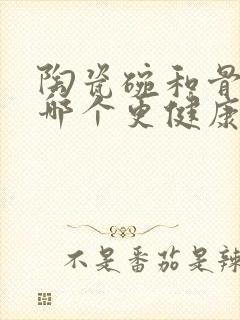 陶瓷碗和骨
哪个更健康
不是番茄是辣